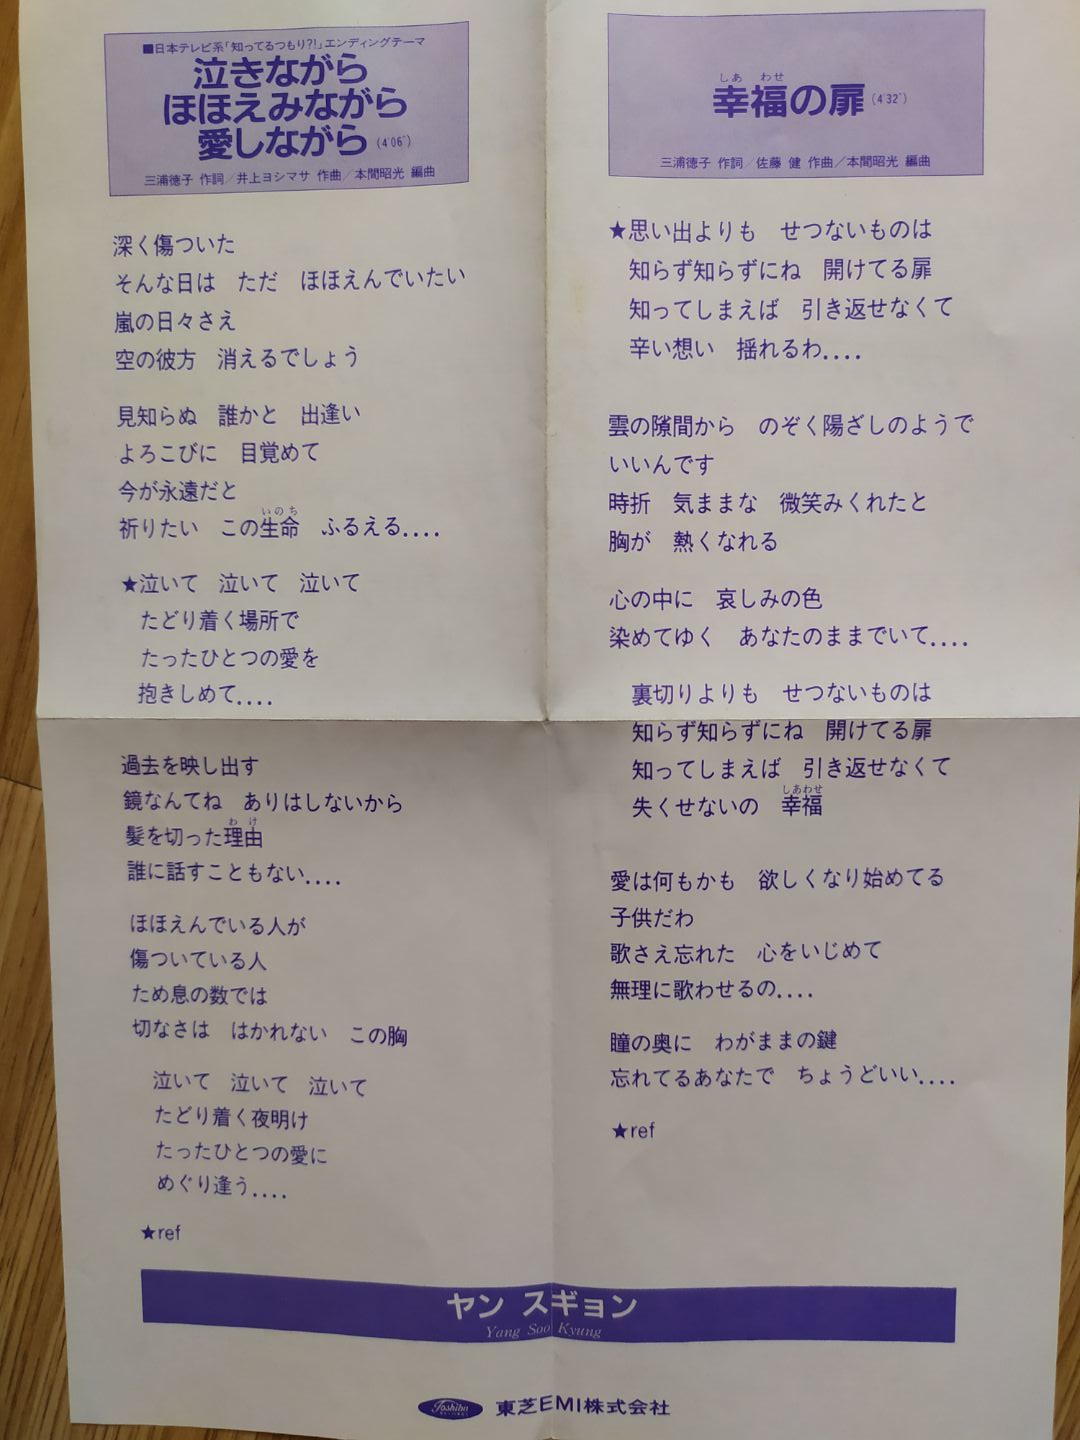 ■日本テレビ系「知ってるつもり?!」エンディングテーマ
泣きながら
ほほえみながら
愛しながら(4'06")
三浦徳子 作詞/井上ヨシマサ 作曲/本間昭光 編曲
深く傷ついた
そんな日は ただ ほほえんでいたい
嵐の日々さえ
空の彼方 消えるでしょう
見知らぬ 誰かと 出逢い
よろこびに 目覚めて
今が永遠だと
いのち
祈りたい この生命 ふるえる....
★泣いて 泣いて 泣いて
たどり着く場所で
たったひとつの愛を
抱きしめて....
過去を映し出す
鏡なんてね ありはしないから
わけ
髪を切った理由
誰に話すこともない....
ほほえんでいる人が
傷ついている人
ため息の数では
切なさは はかれない この胸
泣いて 泣いて 泣いて
たどり着く夜明け
たったひとつの愛に
めぐり逢う....
★ref
しあ わせ
幸福の扉(4'32")
三浦徳子 作詞/佐藤 健 作曲/本間昭光 編曲
★思い出よりも せつないものは
知らず知らずにね 開けてる扉
知ってしまえば 引き返せなくて
辛い想い 揺れるわ....
雲の隙間から のぞく陽ざしのようで
いいんです
時折 気ままな 微笑みくれたと
胸が 熱くなれる
心の中に 哀しみの色
染めてゆく あなたのままでいて....
裏切りよりも せつないものは
知らず知らずにね 開けてる扉
知ってしまえば 引き返せなくて
しあわせ
失くせないの 幸福
愛は何もかも 欲しくなり始めてる
子供だわ
歌さえ忘れた 心をいじめて
無理に歌わせるの....
瞳の奥に わがままの鍵
忘れてるあなたで ちょうどいい....
★ref
ヤン スギョン
Yang Soo Kyung
Toshiba
東芝EMI株式会社